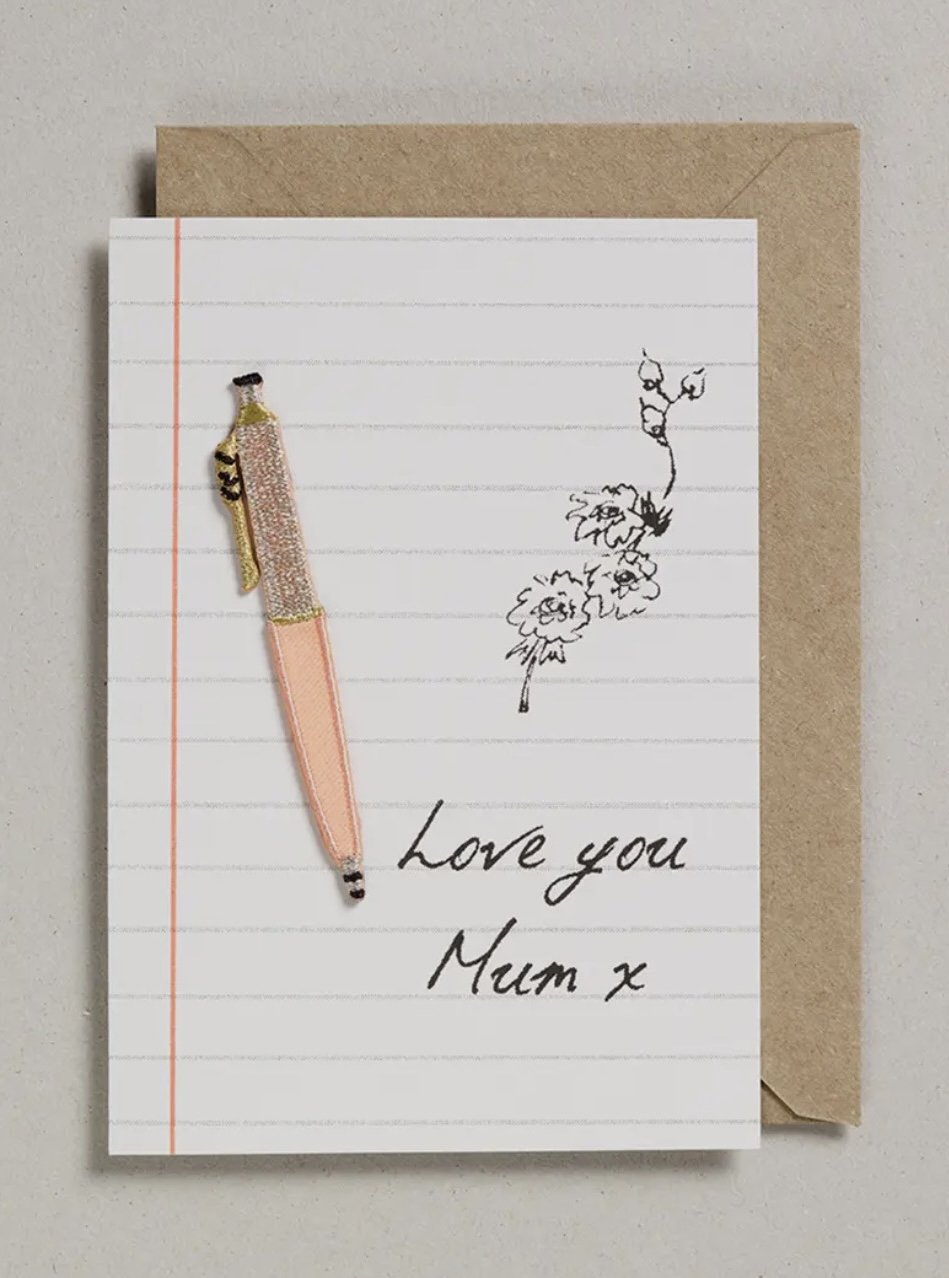 Love you
Mum x